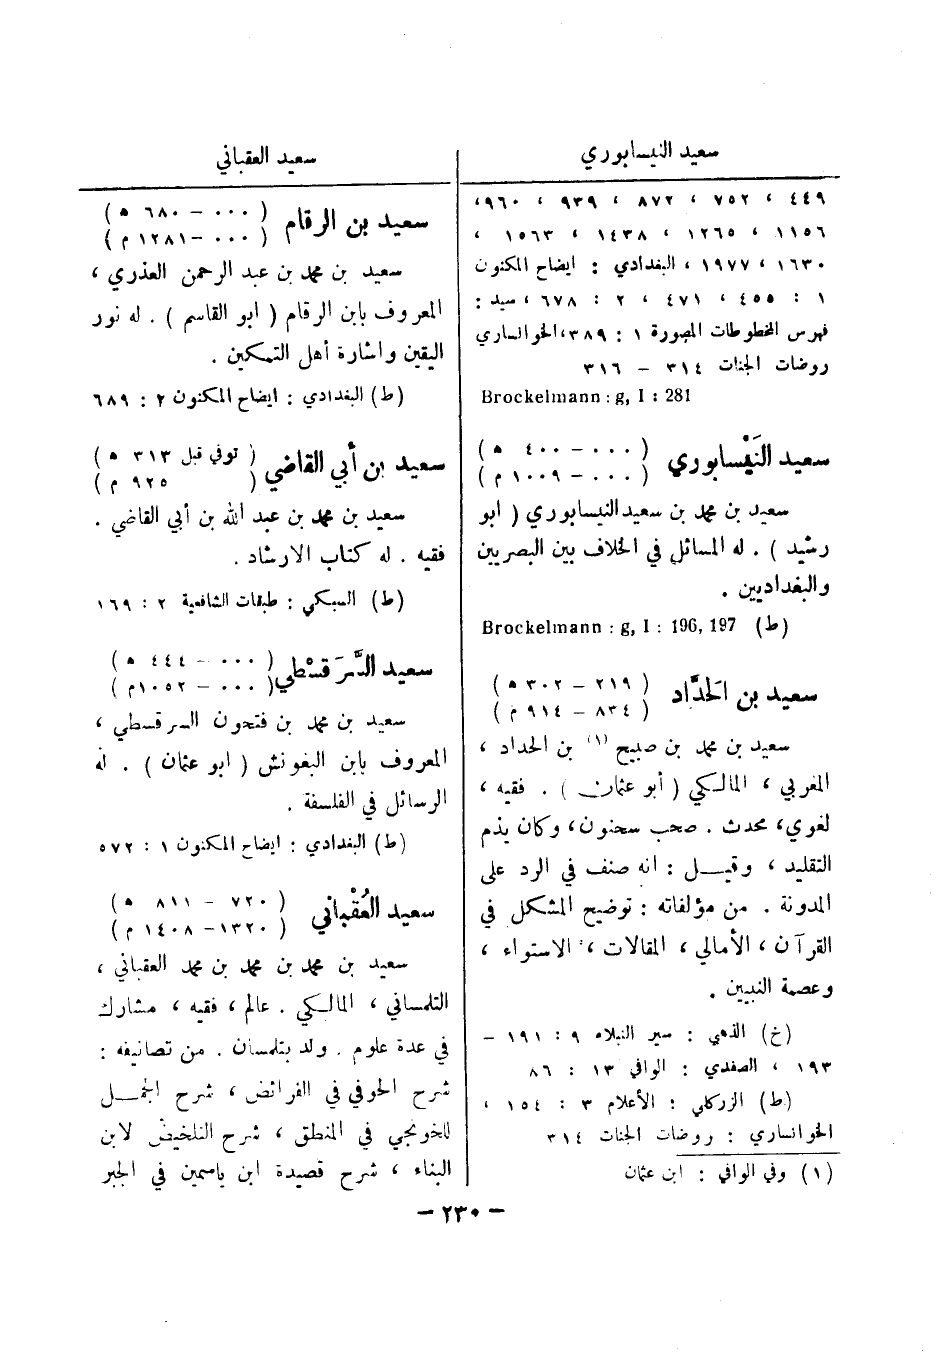 سعيد النيسابوري
٤٤٩ ، ٧٥٢ ، ٨٧٢ ، ٩٣٩ ، ٩٦٠،
١١٥٦ ، ١٢٦٥ ، ١٤٣٨ ، ١٥٦٣ ،
١٦٣٠ ، ١٩٧٧ ، البغدادي : ايضاح المكنون
١ : ٤٥٥ ، ٤٧١ ، ٢ : ٦٧٨ ، سيد :
فهرس المخطوطات المصورة ١ : ٣٨٩،الخوانساري
روضات الجنات ٣١٤ - ٣١٦
Brockelmann : g, I : 281
سعيد النَيْسابوري ( ٠٠٠ - ٤٠٠ ه )
( ٠٠٠ - ١٠٠٩ م )
سعيد بن محمد بن سعيد النيسابوري ( ابو
رشيد ) . له المسائل في الخلاف بين البصريين
والبغداديين .
(ط) Brockelmann : g, I : 196, 197
سعيد بن الحدَّاد ( ٢١٩ - ٣٠٢ ه )
( ٨٣٤ - ٩١٤ م )
سعيد بن محمد بن صبيح (١) بن الحداد ،
المغربي ، المالكي ( أبو عثمان ) . فقيه ،
لغوي، محدث . صحب سحنون، وكان يذم
التقليد ، وقيل : انه صنف في الرد على
المدونة . من مؤلفاته : توضيح المشكل في
القرآن ، الأمالي ، المقالات ، الاستواء ،
وعصمة النبيين .
(خ) الذهبي : سير النبلاء ٩ : ١٩١ -
١٩٣ ، الصفدي : الوافي ١٣ : ٨٦
(ط) الزركلي : الأعلام ٣ : ١٥٤ ،
الخوانساري : روضات الجنات ٣١٤
(١) وفي الوافي : ابن عثمان
سعيد العقباني
سعيد بن الرقام ( ٠٠٠ - ٦٨٠ ه )
( ٠٠٠ - ١٢٨١ م )
سعيد بن محمد بن عبد الرحمن العذري ،
المعروف بابن الرقام ( ابو القاسم ) . له نور
اليقين واشارة أهل التمكين .
(ط) البغدادي : ايضاح المكنون ٢ : ٦٨٩
سعيد بن أبي القاضي ( توفي قبل ٣١٣ ه )
( ٩٢٥ م )
سعيد بن محمد بن عبد الله بن أبي القاضي .
فقيه . له كتاب الارشاد .
(ط) السبكي : طبقات الشافعية ٢ : ١٦٩
سعيد السَّرَقسْطي ( ٠٠٠ - ٤٤٤ ه )
( ٠٠٠ - ١٠٥٢م )
سعيد بن محمد بن فتحون السرقسطي ،
المعروف بابن البغونش ( ابو عثمان ) . له
الرسائل في الفلسفة .
(ط) البغدادي : ايضاح المكنون ١ : ٥٧٢
سعيد العُقْباني ( ٧٢٠ - ٨١١ ه )
( ١٣٢٠- ١٤٠٨ م )
سعيد بن محمد بن محمد بن محمد العقباني ،
التلمساني ، المالكي . عالم ، فقيه ، مشارك
في عدة علوم . ولد بتلمسان . من تصانيفه :
شرح الحوفي في الفرائض ، شرح الجمل
للخونجي في المنطق ، شرح التلخيص لابن
البناء ، شرح قصيدة ابن ياسمين في الجبر
- ٢٣٠ -